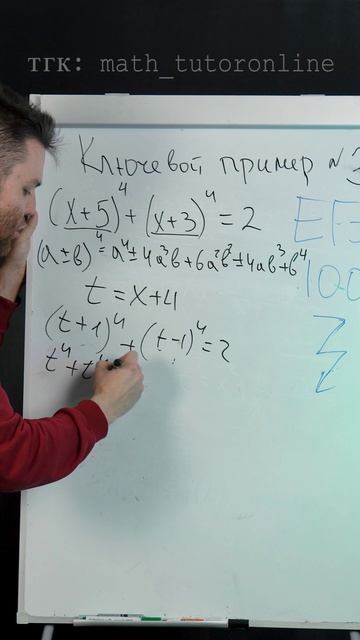 ТГК: math_tutoronline
Ключевой пример N3
(x+5)⁴ + (x+3)⁴ = 2
(a±b)⁴ = a⁴ ± 4a³b + 6a²b² ± 4ab³ + b⁴
t = x+4
(t+1)⁴ + (t-1)⁴ = 2
t⁴ + t⁴